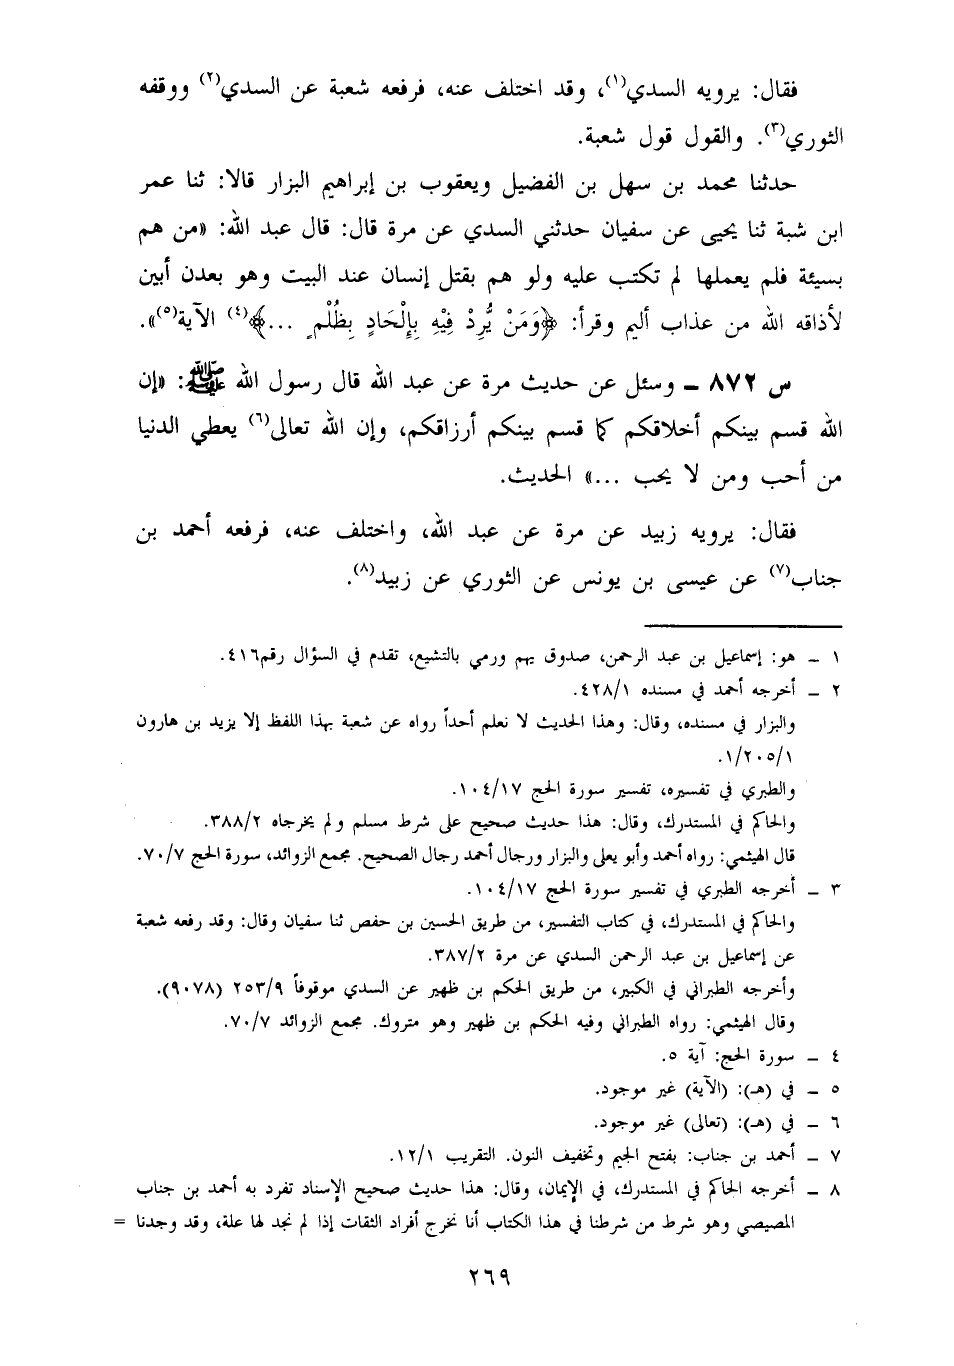 فقال: يرويه السدي(١)، وقد اختلف عنه، فرفعه شعبة عن السدي(٢) ووقفه
الثوري(٣). والقول قول شعبة.
حدثنا محمد بن سهل بن الفضيل ويعقوب بن إبراهيم البزار قالا: ثنا عمر
ابن شبة ثنا يحيى عن سفيان حدثني السدي عن مرة قال: قال عبد الله: «من هم
بسيئة فلم يعملها لم تكتب عليه ولو هم بقتل إنسان عند البيت وهو بعدن أبين
لأذاقه الله من عذاب أليم وقرأ: ﴿وَمَنْ يُّرِدْ فِيْهِ بِإِلْحَادٍ بِظُلْمٍ ...﴾(٤) الآية(٥)».
س ٨٧٢ ــ وسئل عن حديث مرة عن عبد الله قال رسول الله ﷺ: «إن
الله قسم بينكم أخلاقكم كما قسم بينكم أرزاقكم، وإن الله تعالى(٦) يعطي الدنيا
من أحب ومن لا يحب ...» الحديث.
فقال: يرويه زبيد عن مرة عن عبد الله، واختلف عنه، فرفعه أحمد بن
جناب(٧) عن عيسى بن يونس عن الثوري عن زبيد(٨).
١ ــ هو: إسماعيل بن عبد الرحمن، صدوق يهم ورمي بالتشيع، تقدم في السؤال رقم٤١٦.
٢ ــ أخرجه أحمد في مسنده ٤٢٨/١.
والبزار في مسنده، وقال: وهذا الحديث لا نعلم أحداً رواه عن شعبة بهذا اللفظ إلا يزيد بن هارون
١/٢٠٥/١.
والطبري في تفسيره، تفسير سورة الحج ١٠٤/١٧.
والحاكم في المستدرك، وقال: هذا حديث صحيح على شرط مسلم ولم يخرجاه ٣٨٨/٢.
قال الهيثمي: رواه أحمد وأبو يعلى والبزار ورجال أحمد رجال الصحيح. مجمع الزوائد، سورة الحج ٧٠/٧.
٣ ــ أخرجه الطبري في تفسير سورة الحج ١٠٤/١٧.
والحاكم في المستدرك، في كتاب التفسير، من طريق الحسين بن حفص ثنا سفيان وقال: وقد رفعه شعبة
عن إسماعيل بن عبد الرحمن السدي عن مرة ٣٨٧/٢.
وأخرجه الطبراني في الكبير، من طريق الحكم بن ظهير عن السدي موقوفاً ٢٥٣/٩ (٩٠٧٨).
وقال الهيثمي: رواه الطبراني وفيه الحكم بن ظهير وهو متروك. مجمع الزوائد ٧٠/٧.
٤ ــ سورة الحج: آية ٥.
٥ ــ في (هـ): (الآية) غير موجود.
٦ ــ في (هـ): (تعالى) غير موجود.
٧ ــ أحمد بن جناب: بفتح الجيم وتخفيف النون. التقريب ١٢/١.
٨ ــ أخرجه الحاكم في المستدرك، في الإيمان، وقال: هذا حديث صحيح الإسناد تفرد به أحمد بن جناب
المصيصي وهو شرط من شرطنا في هذا الكتاب أنا نخرج أفراد الثقات إذا لم نجد لها علة، وقد وجدنا =
٢٦٩